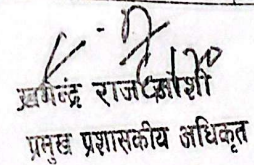 खगेन्द्र राज जोशी
प्रमुख प्रशासकीय अधिकृत